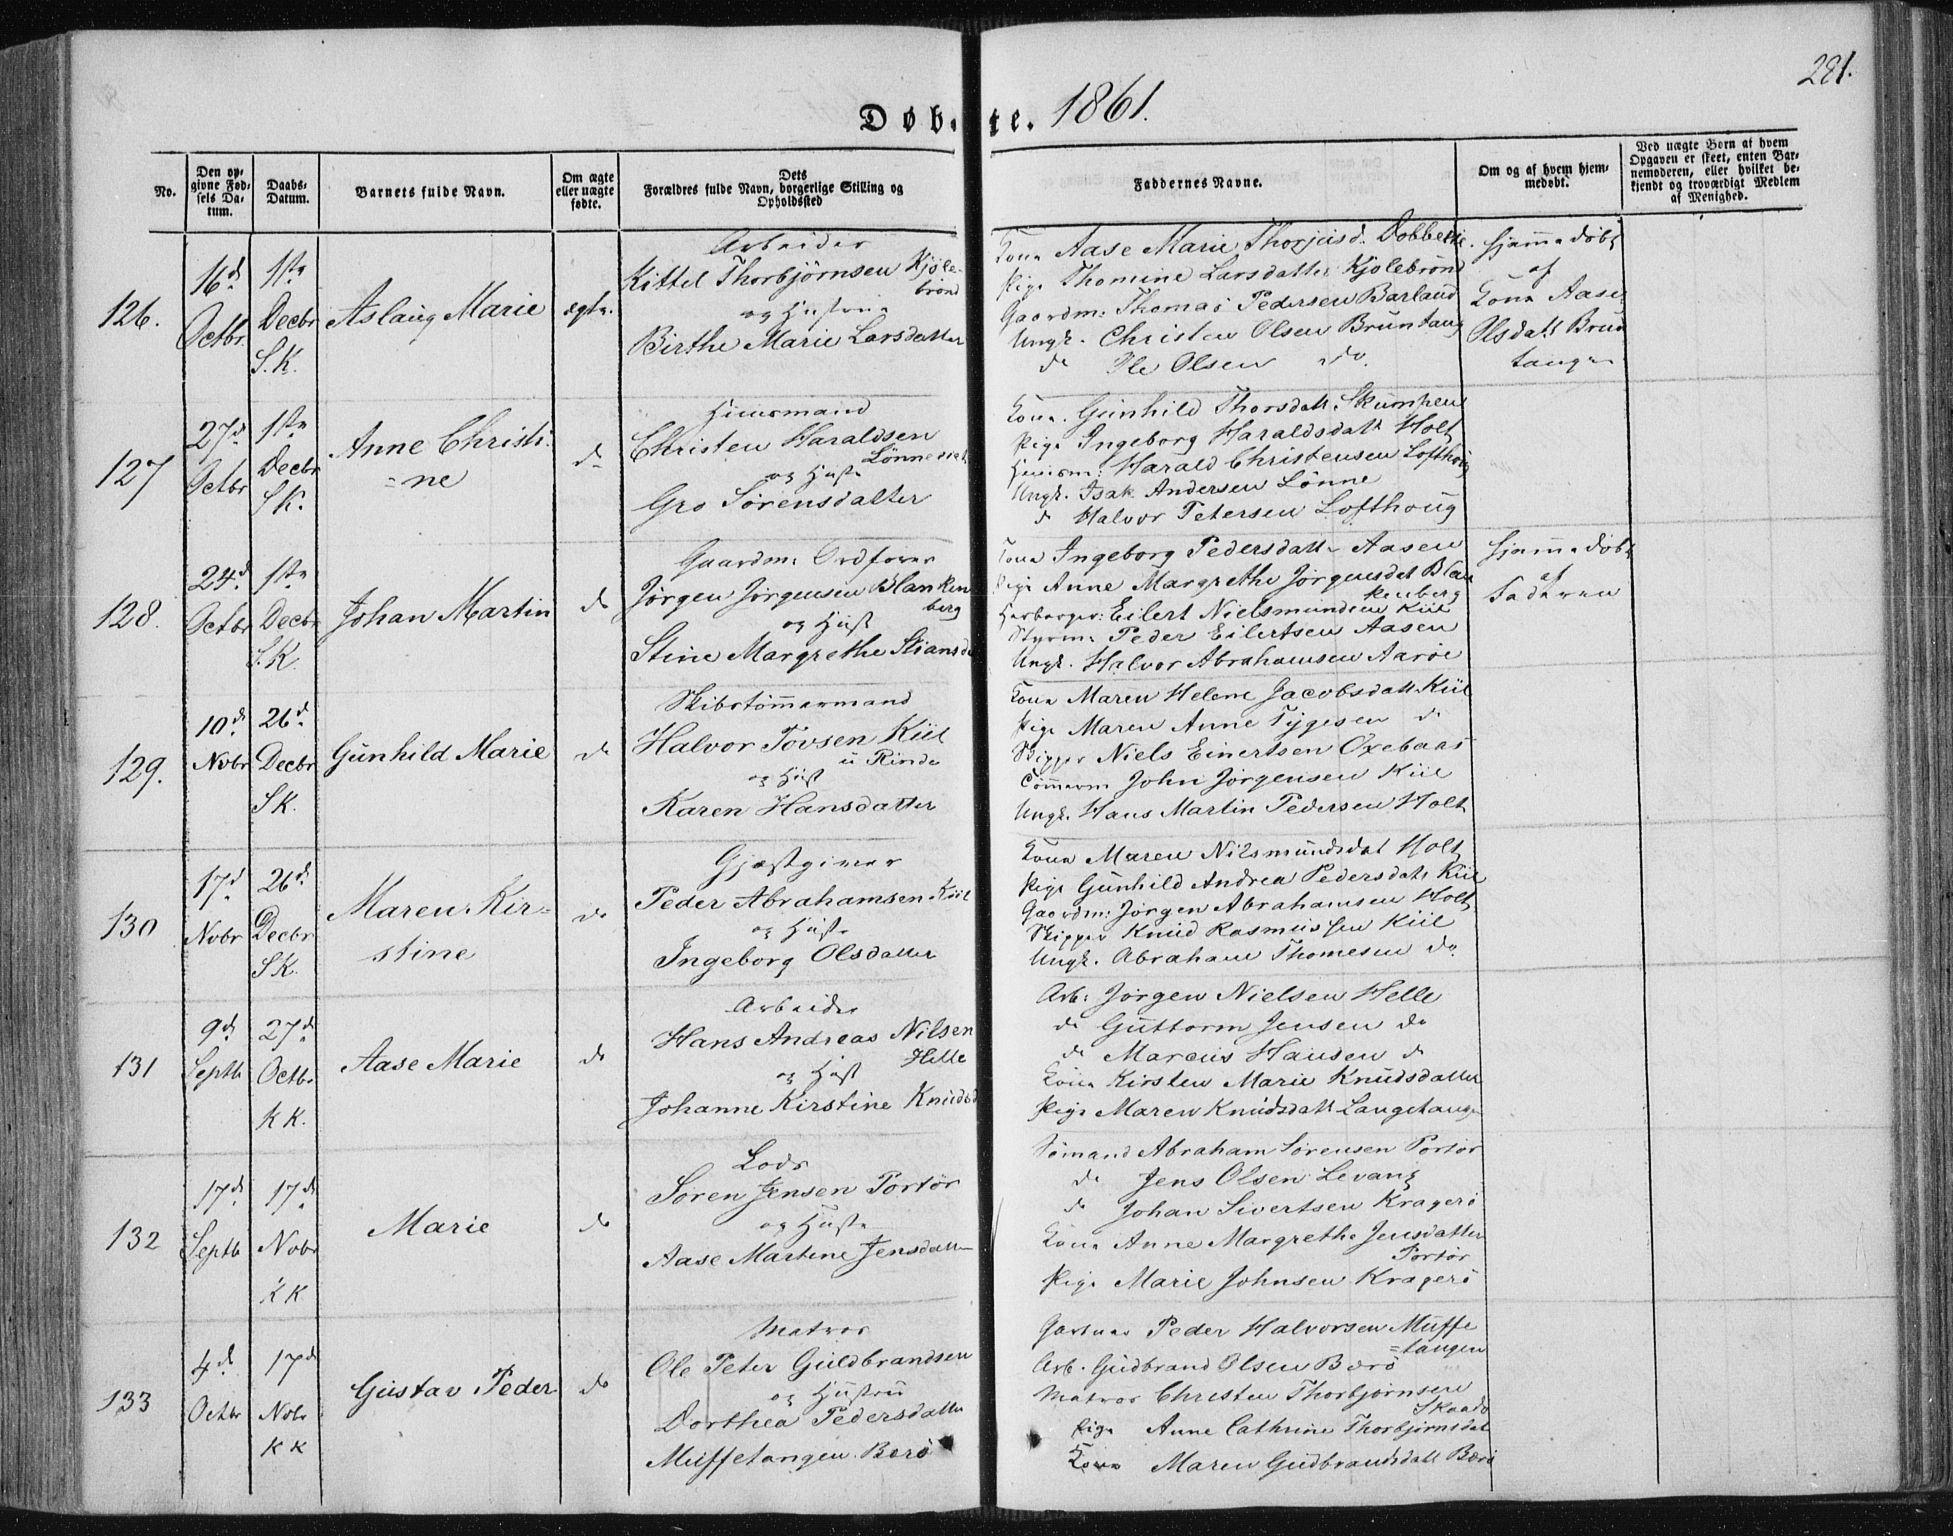 281.
Døbte. 1861.
No.
Den op-
givne Fød-
sels Da-
tum.
Daabs-
Datum.
Barnets fulde Navn.
Om ægte
eller uægte
fødte.
Dets
Forældres fulde Navn, borgerlige Stilling og
Opholdssted
Faddernes Navne.
Om og af hvem hjem-
medøbt.
Ved uægte Børn af hvem
Opgaven er skeet, enten Bar-
nemoderen, eller hvilket be-
kjendt og troværdigt Medlem
af Menighed.
126.
16d
Octbr.
1ste
Decbr
S.K.
Aslaug Marie
ægte.
Arbeider
Kittel Thorbjørnsen Kjøle-
brønd
og Hustru
Birthe Marie Larsdatter
Kona Aase Marie Thorjeisd. Dobbe
Pige Thomine Larsdatter Kjølebrønd
Gaardm: Thomas Pedersen Barland
Ungk. Christen Olsen Bruntang
do Ole Olsen do.
Hjemmedøbt
af
Kona Aase
Olsdatt Brun
tangen
127
27d
Octbr
1ste
Decbr
S.K.
Anne Christi-
=ne
do
Huusmand
Christen Haraldsen
Lønne
og Hustr
Gro Sørensdatter
Kona. Gunhild Thorsdatt. Skumpen
Pige Ingeborg Haraldsdatt Holt
Huusm: Harald Christensen Lofthoug
Ungk. Isak Andersen Lønne
do Halvor Petersen Lofthoug
128.
24d
Octbr
1ste
Decbr
S.K.
Johan Martin
do
Gaardm: Ordfører
Jørgen Jørgensen Blanken
berg
og Hust
Stine Margrethe Stiansd
Kona Ingeborg Pedersdatt. Aasen
Pige Anne Margrethe Jørgensdat Blan
kenberg
Eilert Nielsmunden Kiil
Styrm: Peder Eilertsen Aasen
Ungk. Halvor Abrahamsen Aarøe
Hjemmedøbt
af
Faderen
129.
10d
Nobr
26d
Decbr
S.K.
Gunhild Marie
do
Skibstømmermand
Halvor Tovsen Kiil
u Rinde
og Hust
Karen Hansdatter
Kona Maren Helene Jacobsdatt Kiil
Pige Maren Anne Tygesen do
Skipper Niels Einertsen Oxebaas
Tømmerm John Jørgensen Kiil
Ungk. Hans Martin Pedersen Holt
130
17d
Nobr
26d.
Decbr
S.K.
Maren Kir=
stine
do
Gjæstgiver
Peder Abrahamsen Kiil
og Hust
Ingeborg Olsdatter
Kona Maren Nilsmundsdat Holt
Pige Gunhild Andrea Pedersdatt Kiil
Gaardm: Jørgen Abrahamsen Holt
Skipper Knud Rasmussen Kiil
Ungk. Abraham Thomesen do
131
9d
Septb
27d
Octbr
KK.
Aase Marie
do
Arbeider
Hans Andreas Nilsen
Helle
og Hust
Johanne Kirstine Knudsd
Arb: Jørgen Nielsen Helle
do Guttorm Jensen do
do Marcus Hansen do
Kona Kirsten Marie Knudsdatter
Pige Maren Knudsdatt Langetangen
132
17d
Septb
17d
Nobr
KK
Marie
do
Lods
Søren Jensen Portør
og Hustr
Aase Martine Jensdatter
Sømand Abraham Sørensen Portør
do Jens Olsen Levang
do Johan Sivertsen Kragerø
Kona Anne Margrethe Jensdatter
Portør
Pige Marie Johnsen Kragerø
133
4d
Octbr
17d
Nobr
KK
Gustav Peder
do
Matros
Ole Peter Guldbrandsen
og Hustru
Dorthea Pedersdatter
Muffetangen Bærø
Gartner Peder Halvorsen Muffe
=tangen
Arb. Gudbrand Olsen Bærø
Matros Christen Thorbjørnsen
Skaadø
Pige Anne Cathrine Thorbjørnsdat
Kona Maren Gudbrandsdatt Bærø